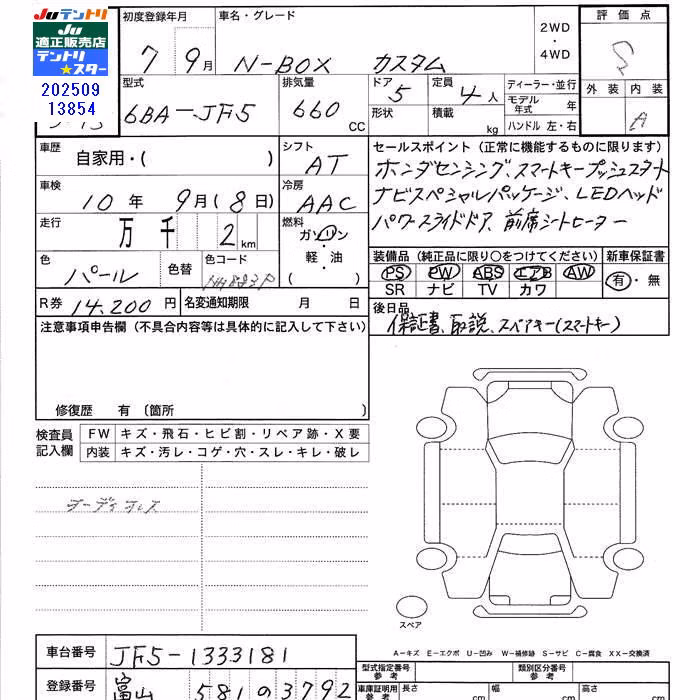 Juテントリ
JU
適正販売店
テントリ
★スター
202509
13854
初度登録年月
7 9月
車名・グレード
N-BOX カスタム
2WD
・
4WD
評価点
S
外装 内装
A
型式
6BA-JF5
排気量
660 CC
ドア 5
形状
定員 4人
積載 kg
ディーラー・並行
モデル年式 年
ハンドル 左・右
車歴
自家用・( )
シフト
AT
セールスポイント (正常に機能するものに限ります)
ホンダセンシング、スマートキープッシュスタート
ナビスペシャルパッケージ、LEDヘッド
パワースライドドア、前席シートヒーター
車検
10年 9月(8日)
冷房
AAC
走行
万 千 2 km
燃料
ガソリン
・
軽・油
( )
色
パール
色替
色コード
NH883P
装備品 (純正品に限り○をつけてください)
新車保証書
PS PW ABS エアB AW
SR ナビ TV カワ
有・無
R券 14,200円
名変通知期限 月 日
後日品
保証書、取説、スペアキー(スマートキー)
注意事項申告欄 (不具合内容等は具体的に記入して下さい)
修復歴 有 〔箇所 〕
検査員
記入欄
FW キズ・飛石・ヒビ割・リペア跡・X要
内装 キズ・汚レ・コゲ・穴・スレ・キレ・破レ
オーディオレス
スペア
A－キズ E－エクボ U－凹み W－補修跡 S－サビ C－腐食 XX－交換済
車台番号 JF5-1333181
登録番号 富山 581の3792
型式指定番号
参考
類別区分番号
参考
車庫証明用
参考
長さ cm
幅 cm
高さ cm